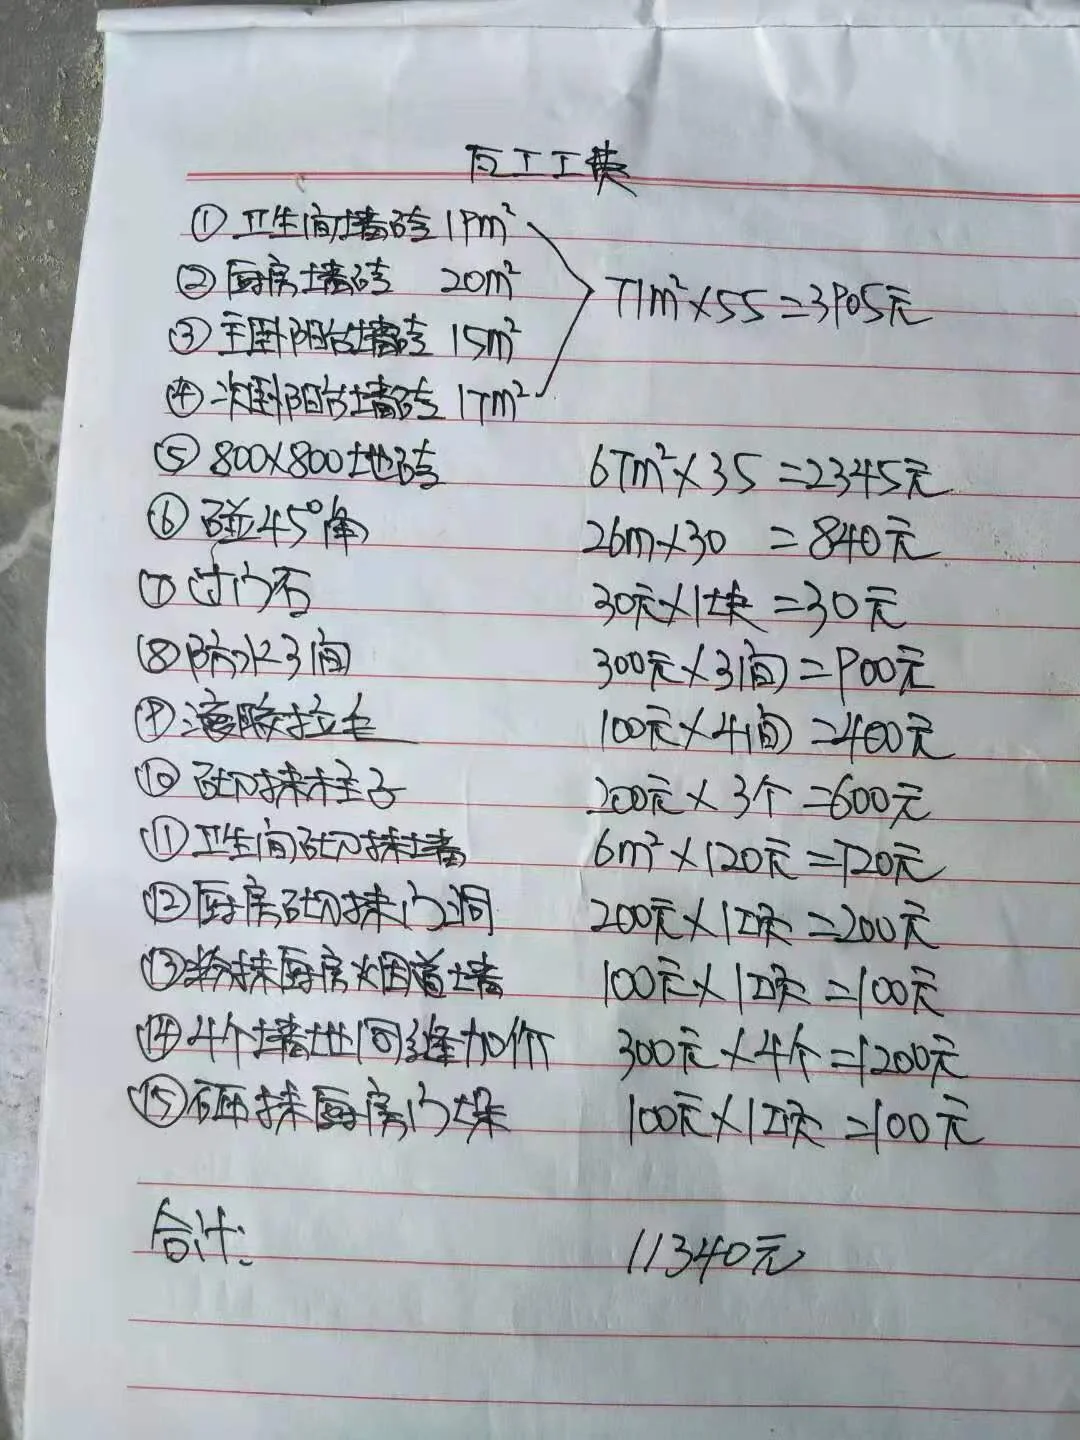 瓦工工费
① 卫生间墙砖 19m²
② 厨房墙砖 20m²
71m²×55=3905元
③ 主卧阳台墙砖 15m²
④ 次卧阳台墙砖 17m²
⑤ 800×800地砖 67m²×35=2345元
⑥ 碰45°角 26m×30 =840元
⑦ 过门石 30元×1块=30元
⑧ 防水3间 300元×3间=900元
⑨ 滚胶拉毛 100元×4间=400元
⑩ 砌抹柱子 200元×3个=600元
⑪ 卫生间砌抹墙 6m²×120元=720元
⑫ 厨房砌抹门洞 200元×1项=200元
⑬ 粉抹厨房烟道墙 100元×1项=100元
⑭ 4个墙地同缝加价 300元×4个=1200元
⑮ 抹厨房门垛 100元×1项=100元
合计: 11340元